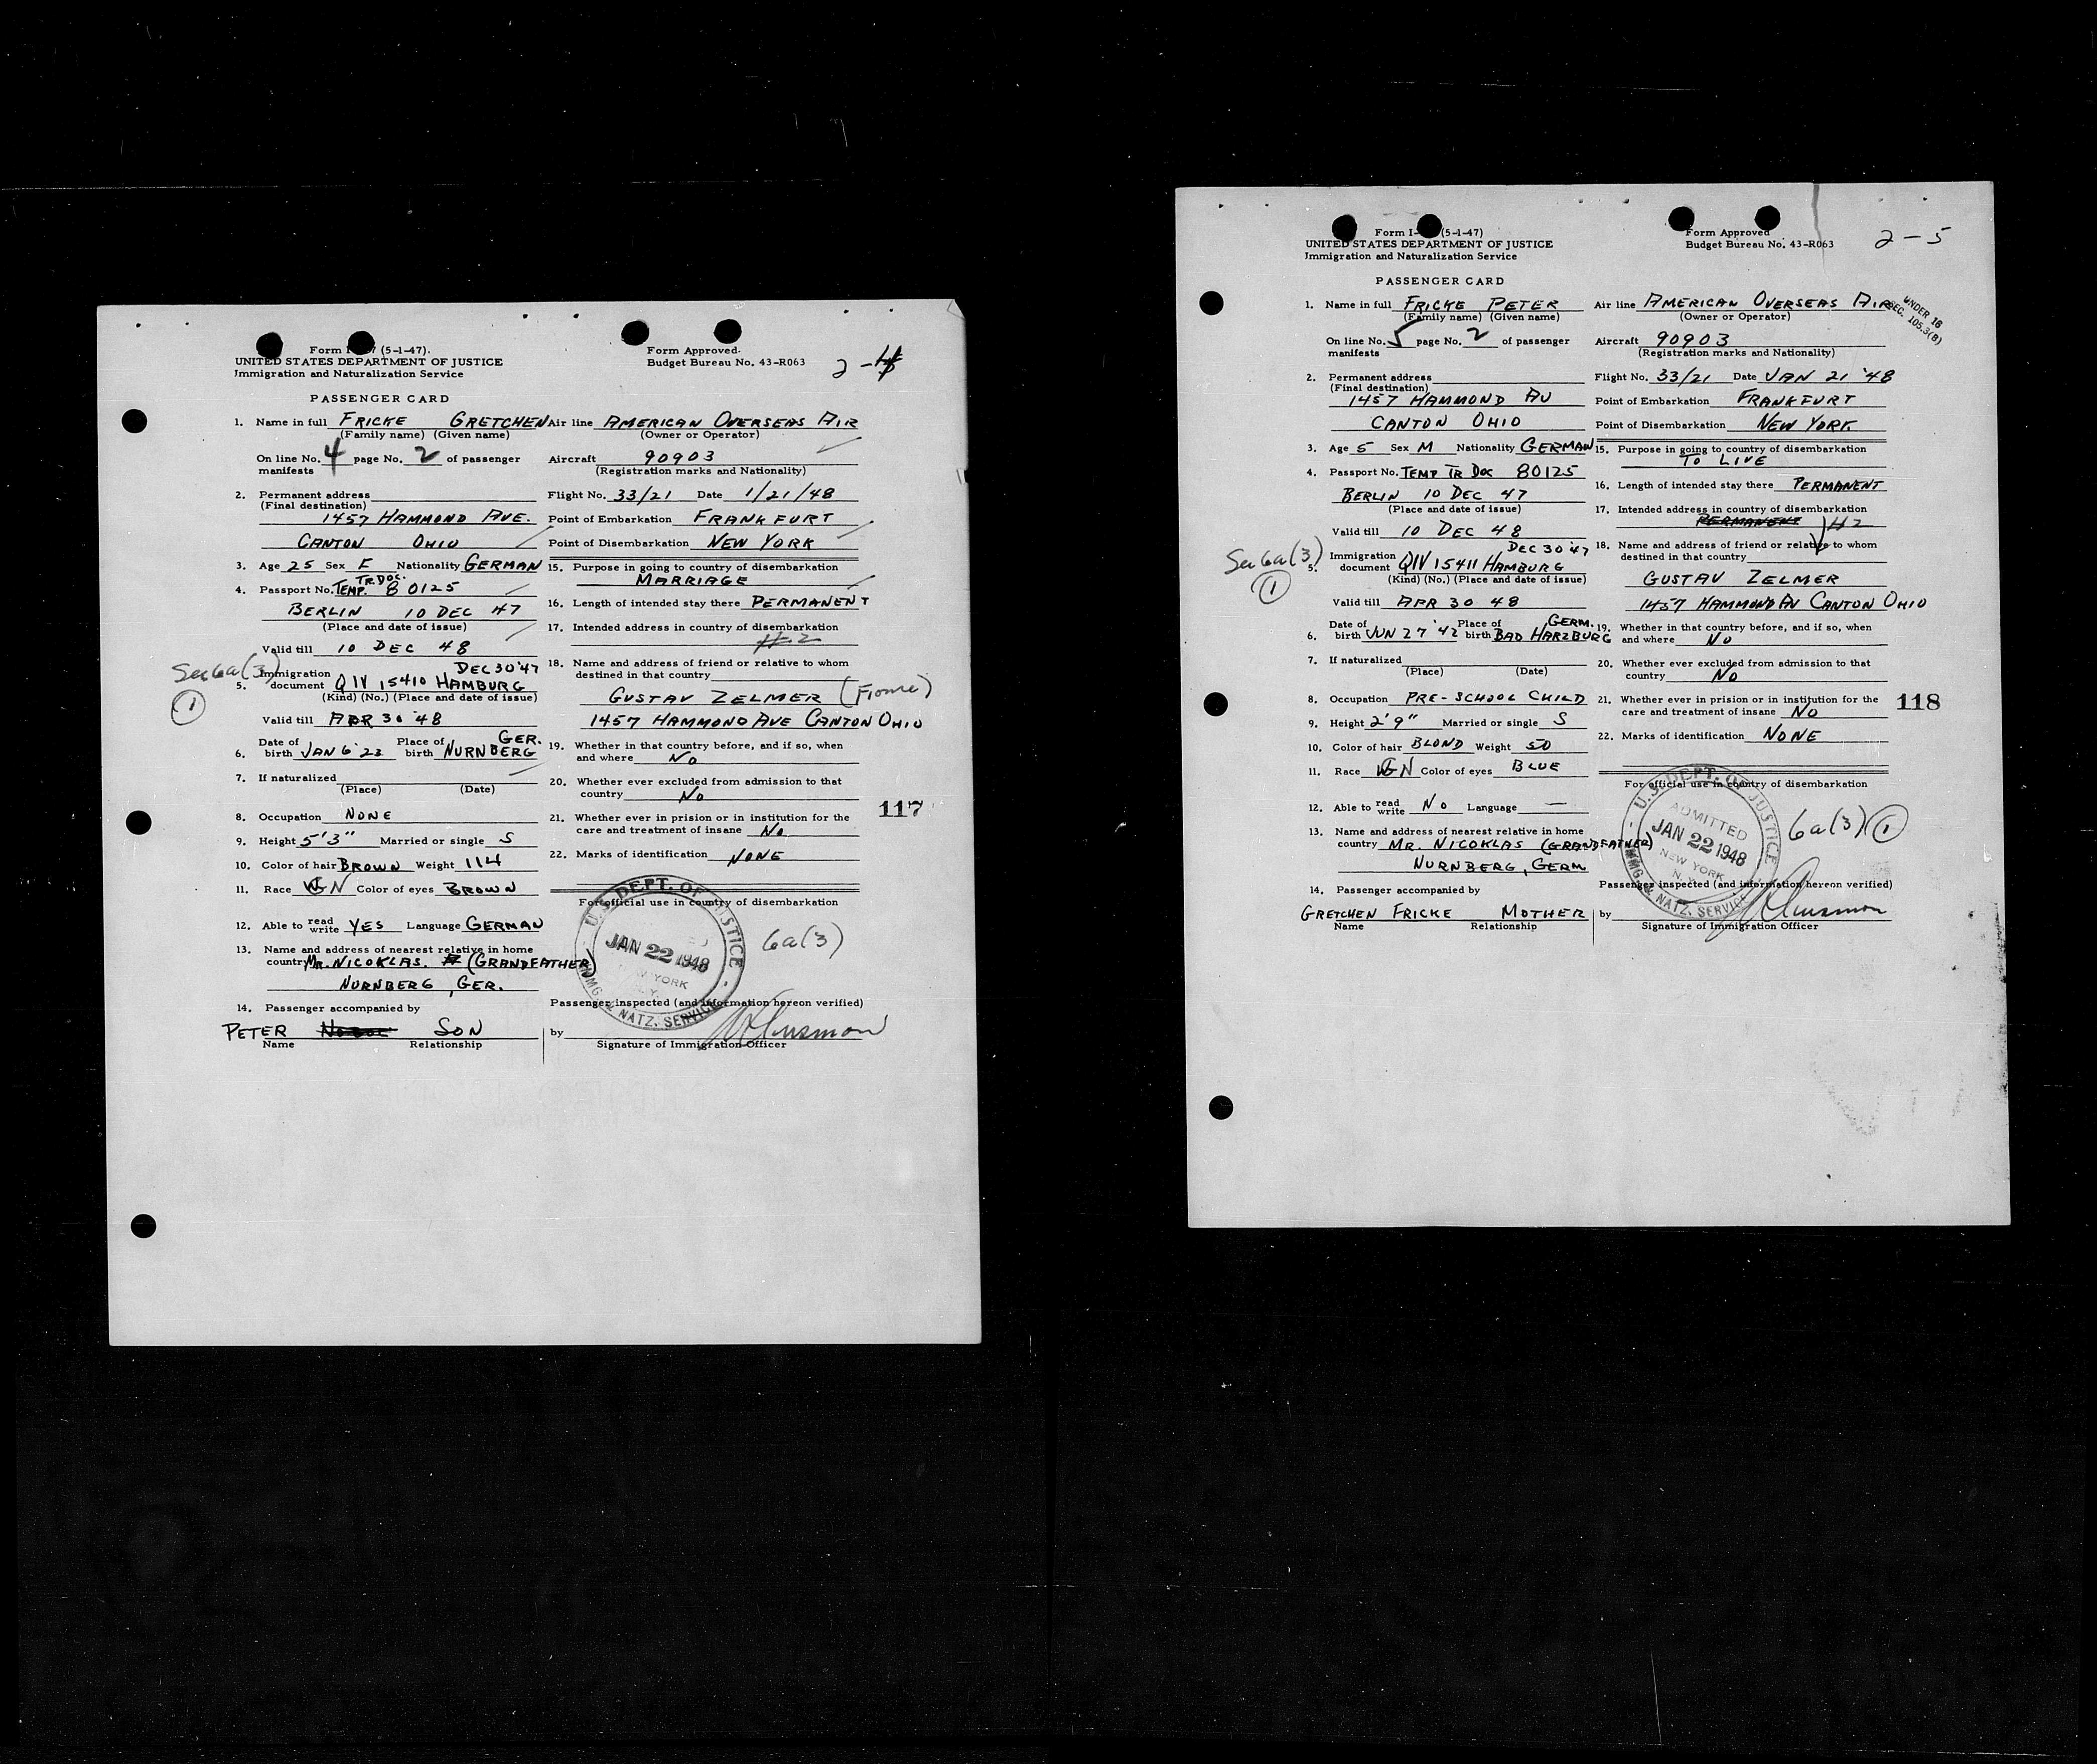 Form I- (5-1-47).
UNITED STATES DEPARTMENT OF JUSTICE
Immigration and Naturalization Service
Form Approved.
Budget Bureau No. 43-R063
2-4
PASSENGER CARD
1. Name in full FRICKE GRETCHEN
(Family name) (Given name)
On line No. 4 page No. 2 of passenger
manifests
2. Permanent address
(Final destination)
1457 HAMMOND AVE.
CANTON OHIO
3. Age 25 Sex F Nationality GERMAN
4. Passport No. TEMP. TR. DOC. 80125
BERLIN 10 DEC 47
(Place and date of issue)
Valid till 10 DEC 48
Sec 6a(3)
1
DEC 30 '47
5. Immigration
document QIV 15410 HAMBURG
(Kind) (No.) (Place and date of issue)
Valid till APR 30 '48
6. Date of birth JAN 6 '23 Place of birth NURNBERG GER.
7. If naturalized
(Place) (Date)
8. Occupation NONE
9. Height 5'3" Married or single S
10. Color of hair BROWN Weight 114
11. Race GN Color of eyes BROWN
12. Able to read write YES Language GERMAN
13. Name and address of nearest relative in home
country MR. NICOKLAS. (GRANDFATHER)
NURNBERG, GER.
14. Passenger accompanied by
PETER SON
Name Relationship
Air line AMERICAN OVERSEAS AIR
(Owner or Operator)
Aircraft 90903
(Registration marks and Nationality)
Flight No. 33/21 Date 1/21/48
Point of Embarkation FRANKFURT
Point of Disembarkation NEW YORK
15. Purpose in going to country of disembarkation
MARRIAGE
16. Length of intended stay there PERMANENT
17. Intended address in country of disembarkation
#2
18. Name and address of friend or relative to whom
destined in that country
GUSTAV ZELMER
1457 HAMMOND AVE CANTON OHIO
19. Whether in that country before, and if so, when
and where NO
20. Whether ever excluded from admission to that
country NO
21. Whether ever in prision or in institution for the
care and treatment of insane NO
117
22. Marks of identification NONE
For official use in country of disembarkation
U.S. DEPT. OF JUSTICE
JAN 22 1948
NEW YORK
N.Y.
IMMG. & NATZ. SERVICE
6a(3)
Passenger inspected (and information hereon verified)
by
Signature of Immigration Officer
Form I- (5-1-47)
UNITED STATES DEPARTMENT OF JUSTICE
Immigration and Naturalization Service
Form Approved
Budget Bureau No. 43-R063
2-5
PASSENGER CARD
1. Name in full FRICKE PETER
(Family name) (Given name)
On line No. 5 page No. 2 of passenger
manifests
2. Permanent address
(Final destination)
1457 HAMMOND AV
CANTON OHIO
3. Age 5 Sex M Nationality GERMAN
4. Passport No. TEMP TR DOC 80125
BERLIN 10 DEC 47
(Place and date of issue)
Valid till 10 DEC 48
Sec 6a(3)
1
DEC 30 '47
5. Immigration
document QIV 15411 HAMBURG
(Kind) (No.) (Place and date of issue)
Valid till APR 30 48
6. Date of birth JUN 27 '42 Place of birth BAD HARZBURG GERM.
7. If naturalized
(Place) (Date)
8. Occupation PRE-SCHOOL CHILD
9. Height 2'9" Married or single S
10. Color of hair BLOND Weight 50
11. Race GN Color of eyes BLUE
12. Able to read write NO Language —
13. Name and address of nearest relative in home
country MR. NICOKLAS (GRANDFATHER)
NURNBERG, GERM
14. Passenger accompanied by
GRETCHEN FRICKE MOTHER
Name Relationship
Air line AMERICAN OVERSEAS AIR
(Owner or Operator)
UNDER 16
SEC. 105.3(B)
Aircraft 90903
(Registration marks and Nationality)
Flight No. 33/21 Date JAN 21 '48
Point of Embarkation FRANKFURT
Point of Disembarkation NEW YORK
15. Purpose in going to country of disembarkation
TO LIVE
16. Length of intended stay there PERMANENT
17. Intended address in country of disembarkation
PERMANENT #2
18. Name and address of friend or relative to whom
destined in that country
GUSTAV ZELMER
1457 HAMMOND AV CANTON OHIO
19. Whether in that country before, and if so, when
and where NO
20. Whether ever excluded from admission to that
country NO
21. Whether ever in prision or in institution for the
care and treatment of insane NO
118
22. Marks of identification NONE
For official use in country of disembarkation
U.S. DEPT. OF JUSTICE
ADMITTED
JAN 22 1948
NEW YORK
N.Y.
IMMG. & NATZ. SERVICE
6a(3) 1
Passenger inspected (and information hereon verified)
by
Signature of Immigration Officer